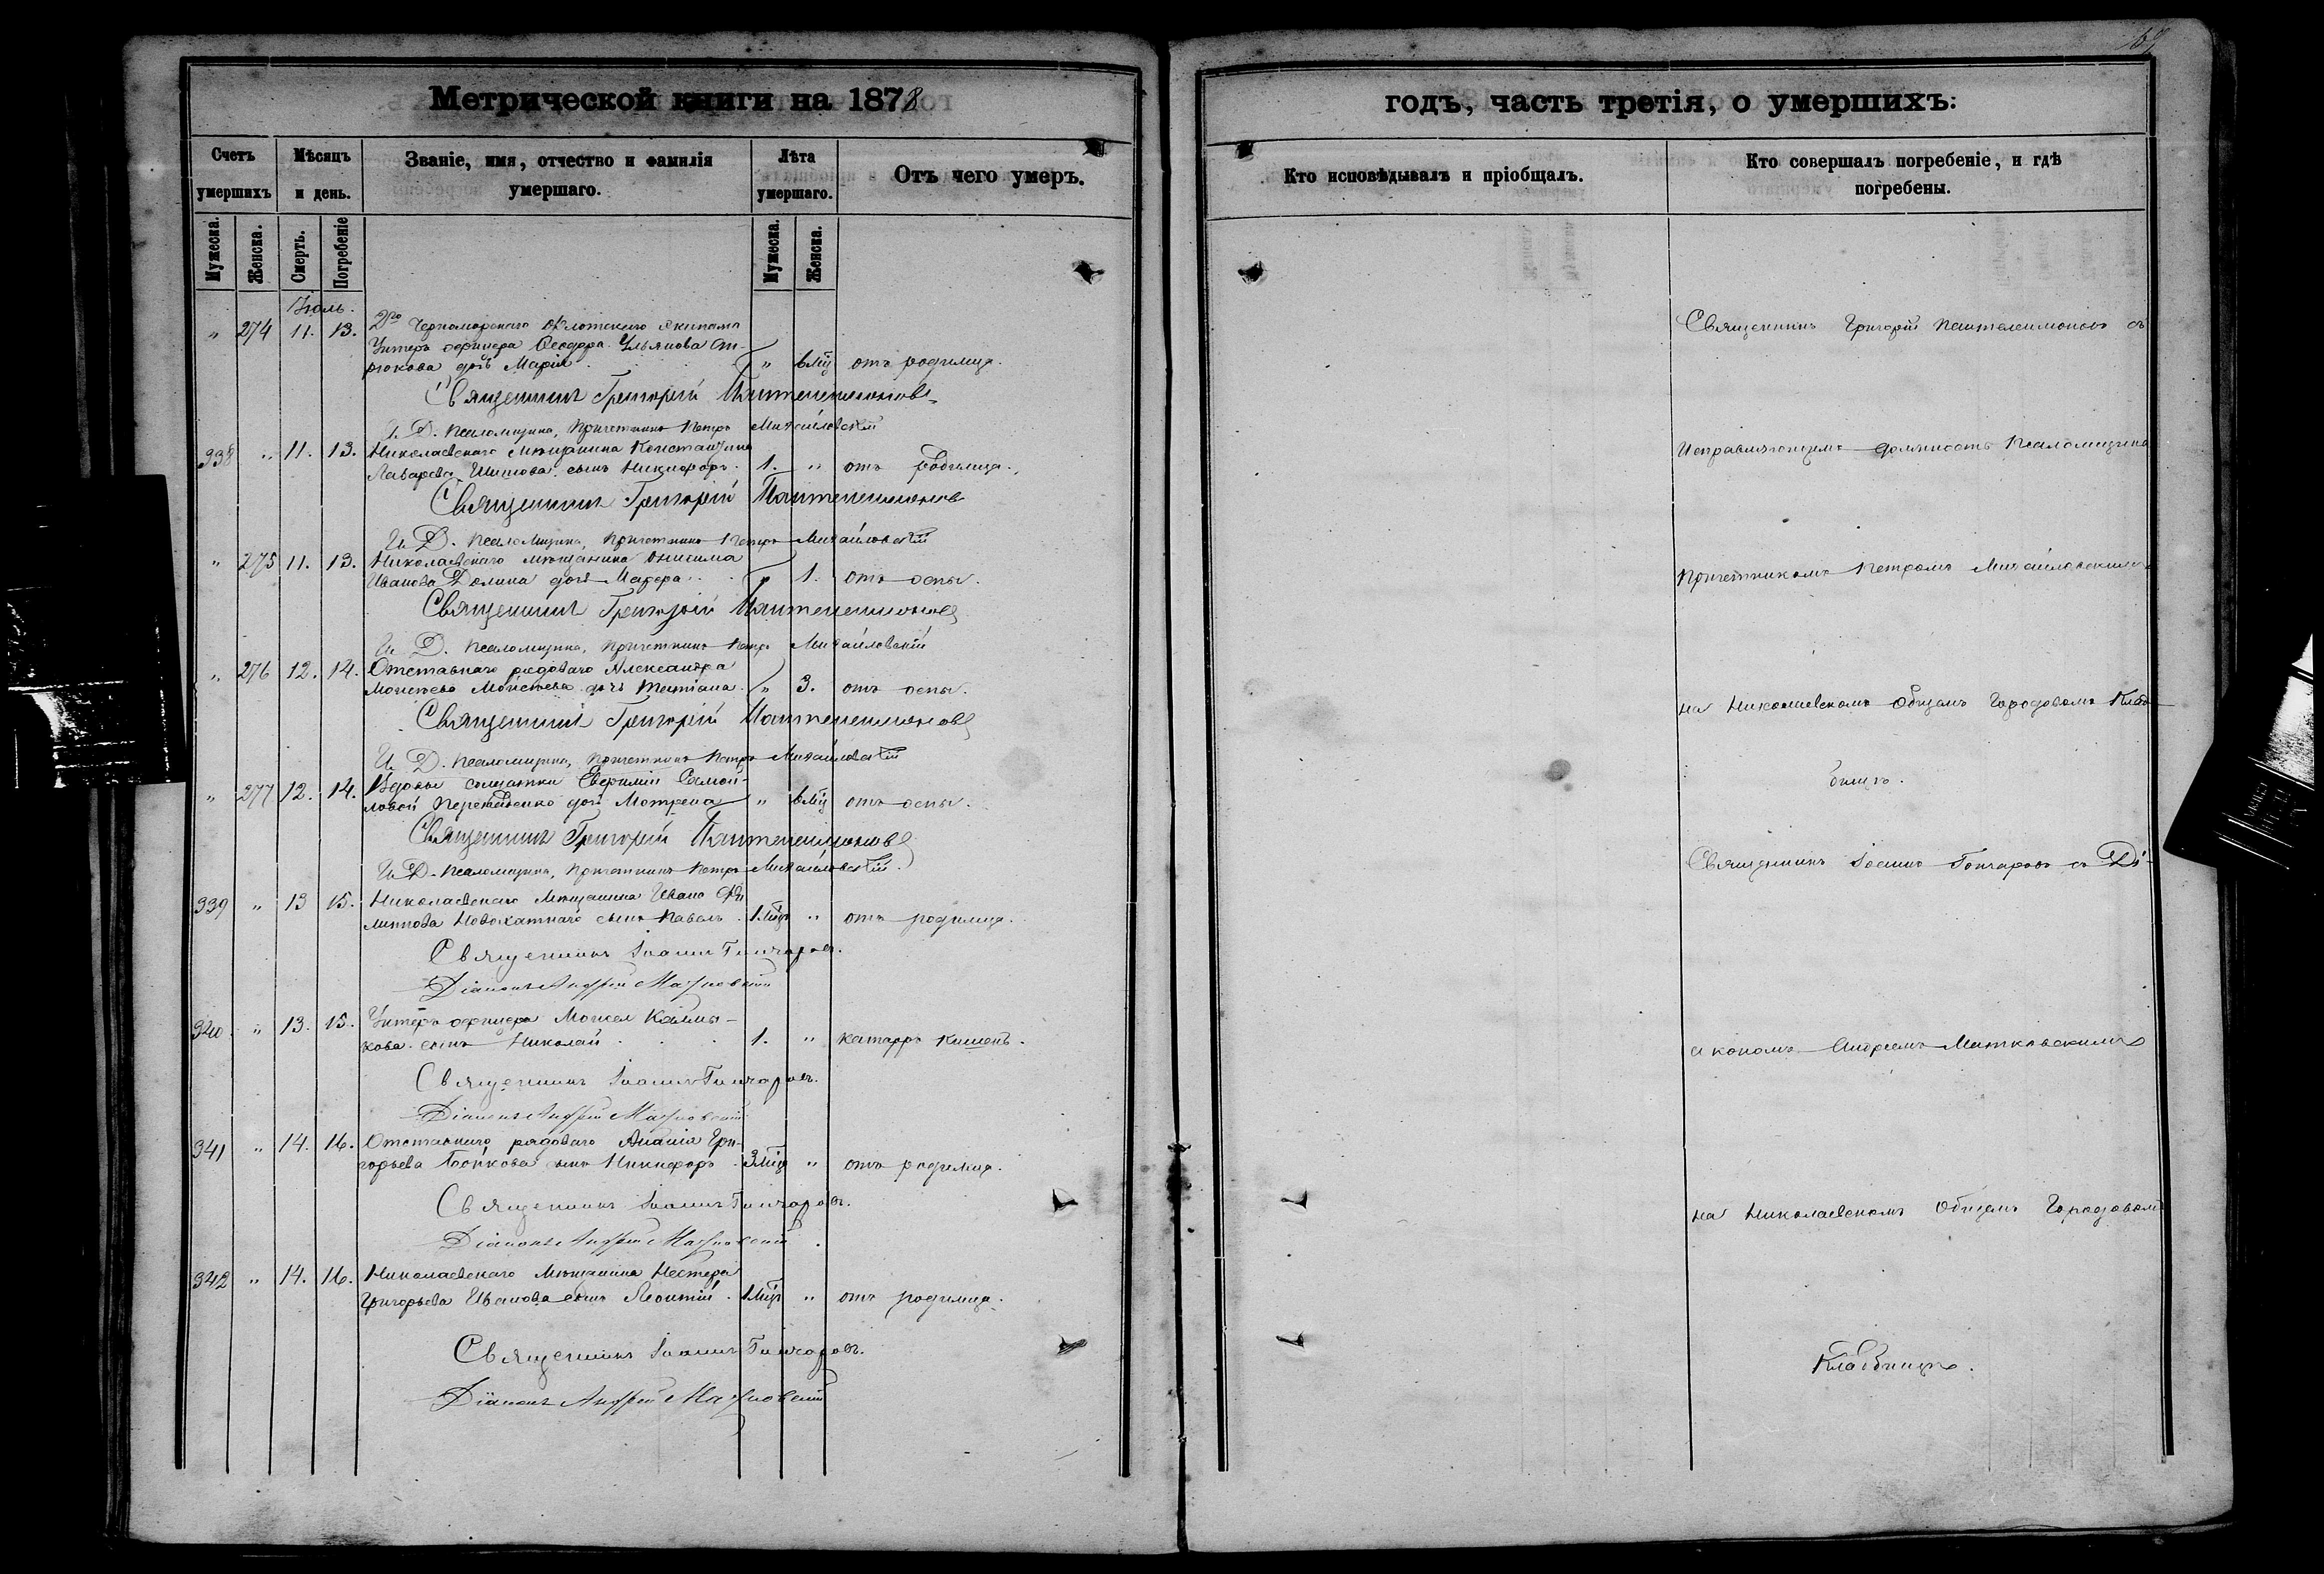 Метрической книги на 1878
Счетъ умершихъ
Мѣсяцъ и день.
Званіе, имя, отчество и фамилія умершаго.
Лѣта умершаго.
Отъ чего умеръ.
Мужеска.
Женска.
Смерть.
Погребеніе
Мужеска.
Женска.
Іюль.
" 274 11. 13. 2го Черноморскаго Флотскаго Экипажа
Унтеръ офицера Ѳеодора Ульянова
дочь Марія " 6 мц отъ родимца.
Священникъ Григорій Пантелеимоновъ
И. Д. Псаломщика, Причетникъ Петръ Михайловскій
338 " 11. 13. Николаевскаго Мѣщанина Константина
Лазарева Шитова сынъ Никифоръ 1. " отъ родимца.
Священникъ Григорій Пантелеимоновъ
И. Д. Псаломщика, Причетникъ Петръ Михайловскій
" 275 11. 13. Николаевскаго мѣщанина Онисима
Иванова Долина дочь Марфа " 1. отъ оспы.
Священникъ Григорій Пантелеимоновъ
И. Д. Псаломщика, Причетникъ Петръ Михайловскій
" 276 12. 14. Отставнаго рядоваго Александра
Моисеева Моисеева дочь Татіана " 3. отъ оспы.
Священникъ Григорій Пантелеимоновъ
И. Д. Псаломщика, Причетникъ Петръ Михайловскій
" 277 12. 14. Вдовы солдатки Евфиміи Самой-
ловой дочь Матрена " 6 мц отъ оспы.
Священникъ Григорій Пантелеимоновъ
И. Д. Псаломщика, Причетникъ Петръ Михайловскій.
339 " 13 15. Николаевскаго Мѣщанина Ивана Фи
липпова Новохатнаго сынъ Павелъ 1 мцъ " отъ родимца.
Священникъ Іоаннъ Гончаровъ.
Діаконъ Андрей Матковскій
340. " 13. 15. Унтеръ офицера Моисея Калмы-
кова сынъ Николай 1. " катарръ кишекъ.
Священникъ Іоаннъ Гончаровъ.
Діаконъ Андрей Матковскій
341 " 14. 16. Отставнаго рядоваго Ананія Гри-
горьева Бойкова сынъ Никифоръ 3 мцъ " отъ родимца.
Священникъ Іоаннъ Гончаровъ.
Діаконъ Андрей Матковскій.
342 " 14. 16. Николаевскаго Мѣщанина Нестера
Григорьева Иванова сынъ Леонтій 1 мцъ " отъ родимца.
Священникъ Іоаннъ Гончаровъ.
Діаконъ Андрей Матковскій
годъ, часть третія, о умершихъ:
Кто исповѣдывалъ и пріобщалъ.
Кто совершалъ погребеніе, и гдѣ погребены.
Священникъ Григорій Пантелеимоновъ съ
Исправляющимъ должность Псаломщика
Причетникомъ Петромъ Михайловскимъ
на Николаевскомъ Общемъ Городовомъ Клад-
бищѣ.
Священникъ Іоаннъ Гончаровъ съ Ді-
акономъ Андреемъ Матковскимъ
на Николаевскомъ Общемъ Городовомъ
Кладбищѣ.